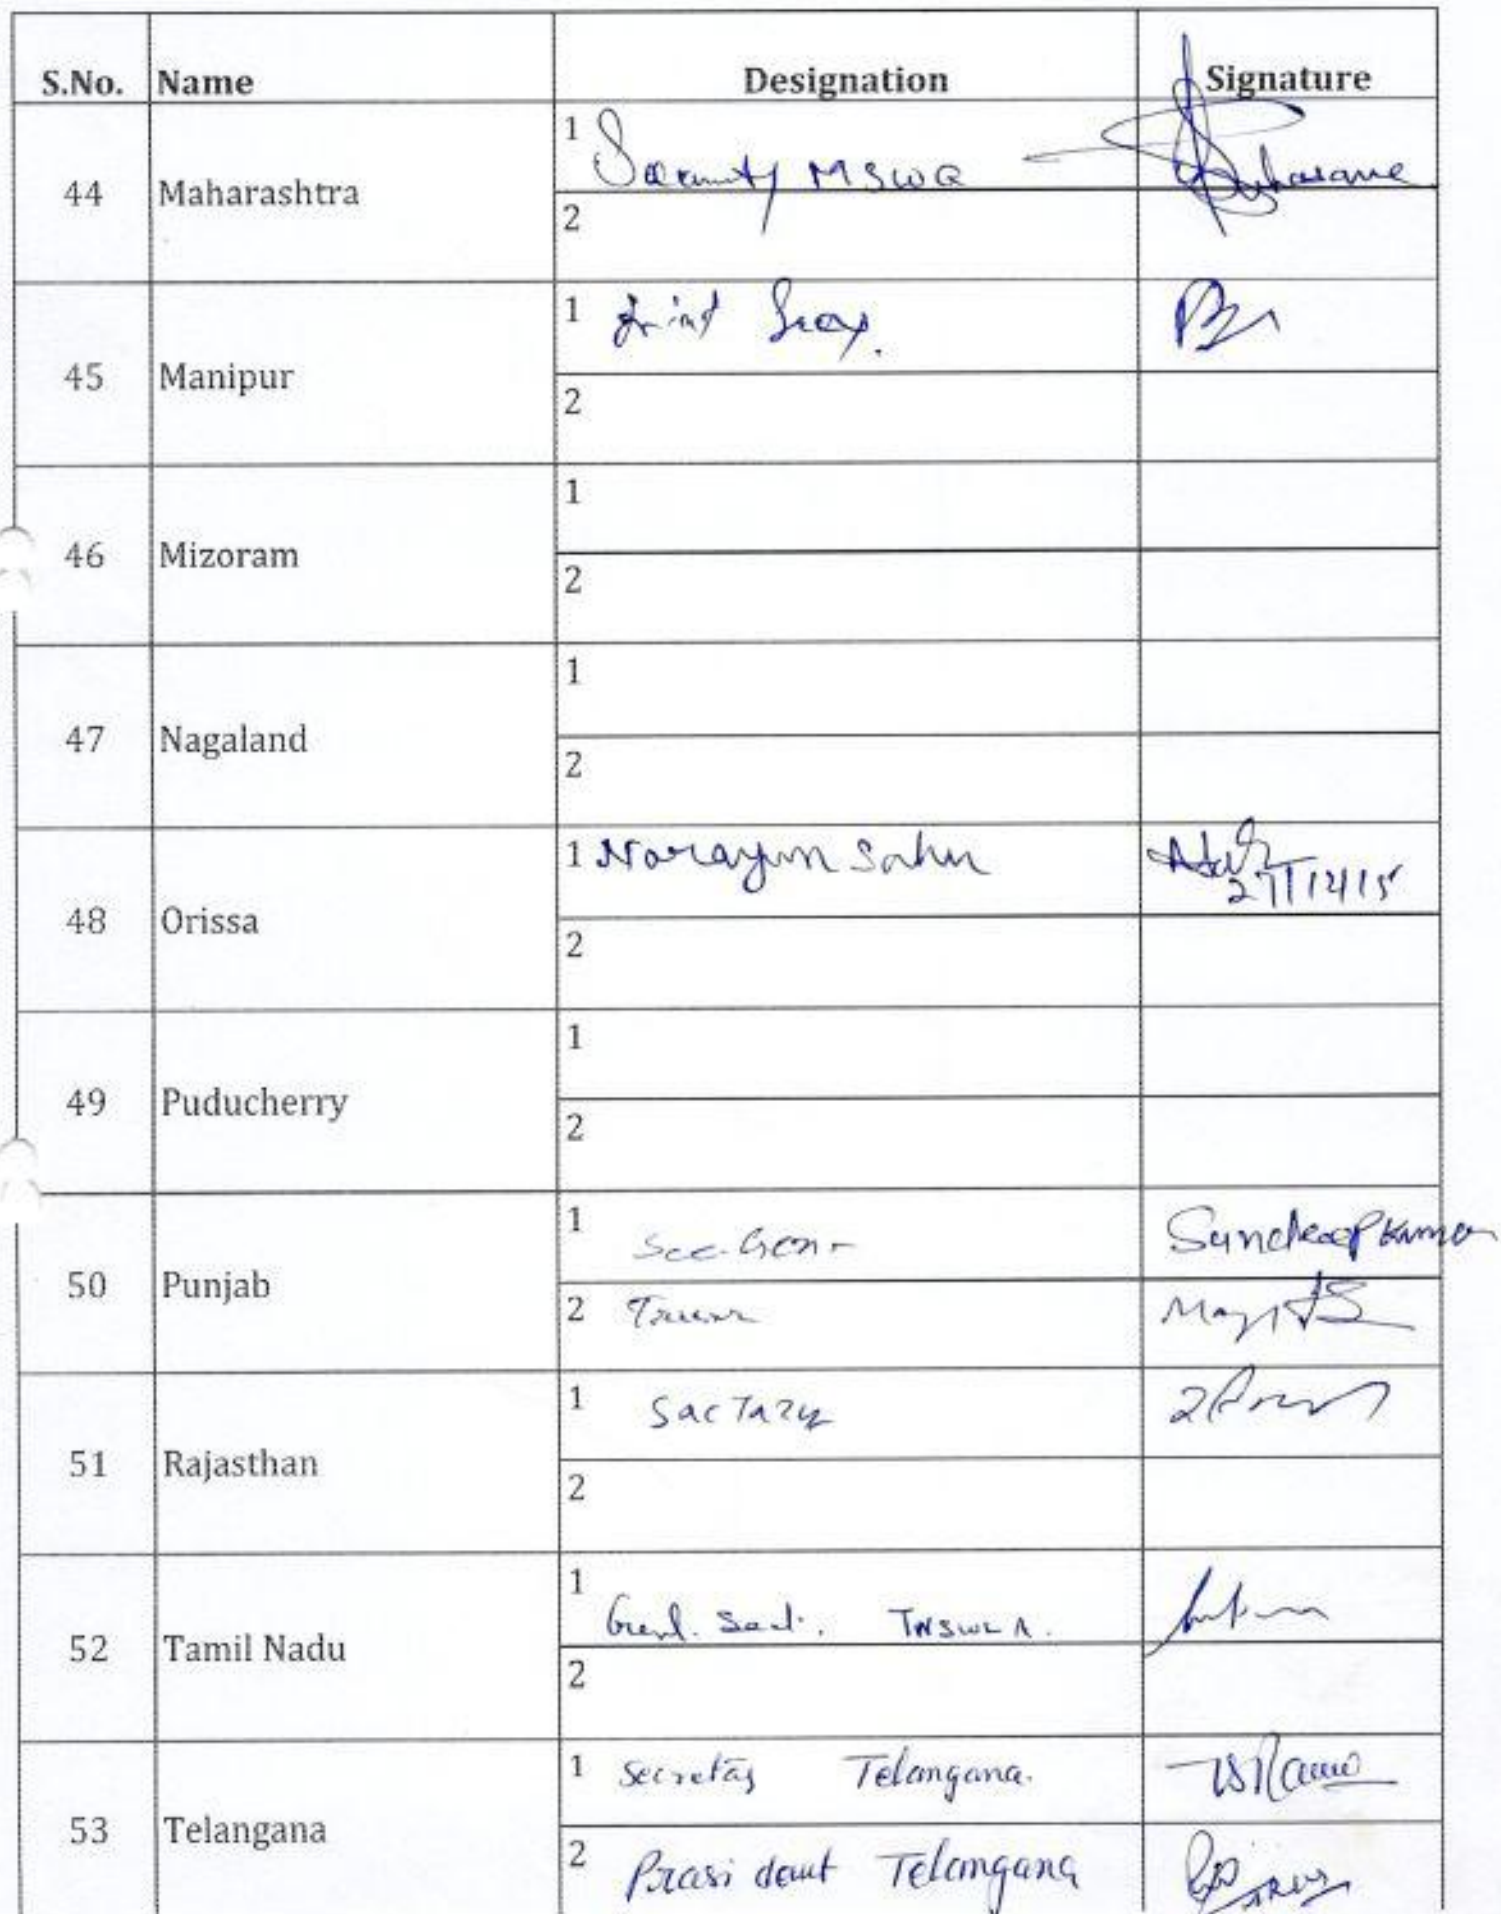 S.No. Name Designation Signature
44 Maharashtra
1 MSWA
2
45 Manipur
1 Joint Secy.
2
46 Mizoram
1
2
47 Nagaland
1
2
48 Orissa
1 Narayan Sahu 27/12/15
2
49 Puducherry
1
2
50 Punjab
1 Sec. Gen Sundeep Kumar
2
51 Rajasthan
1 SacTazy
2
52 Tamil Nadu
1 Genl. Sect. TNSWLA.
2
53 Telangana
1 Secretay Telangana.
2 Prasi dent Telangana